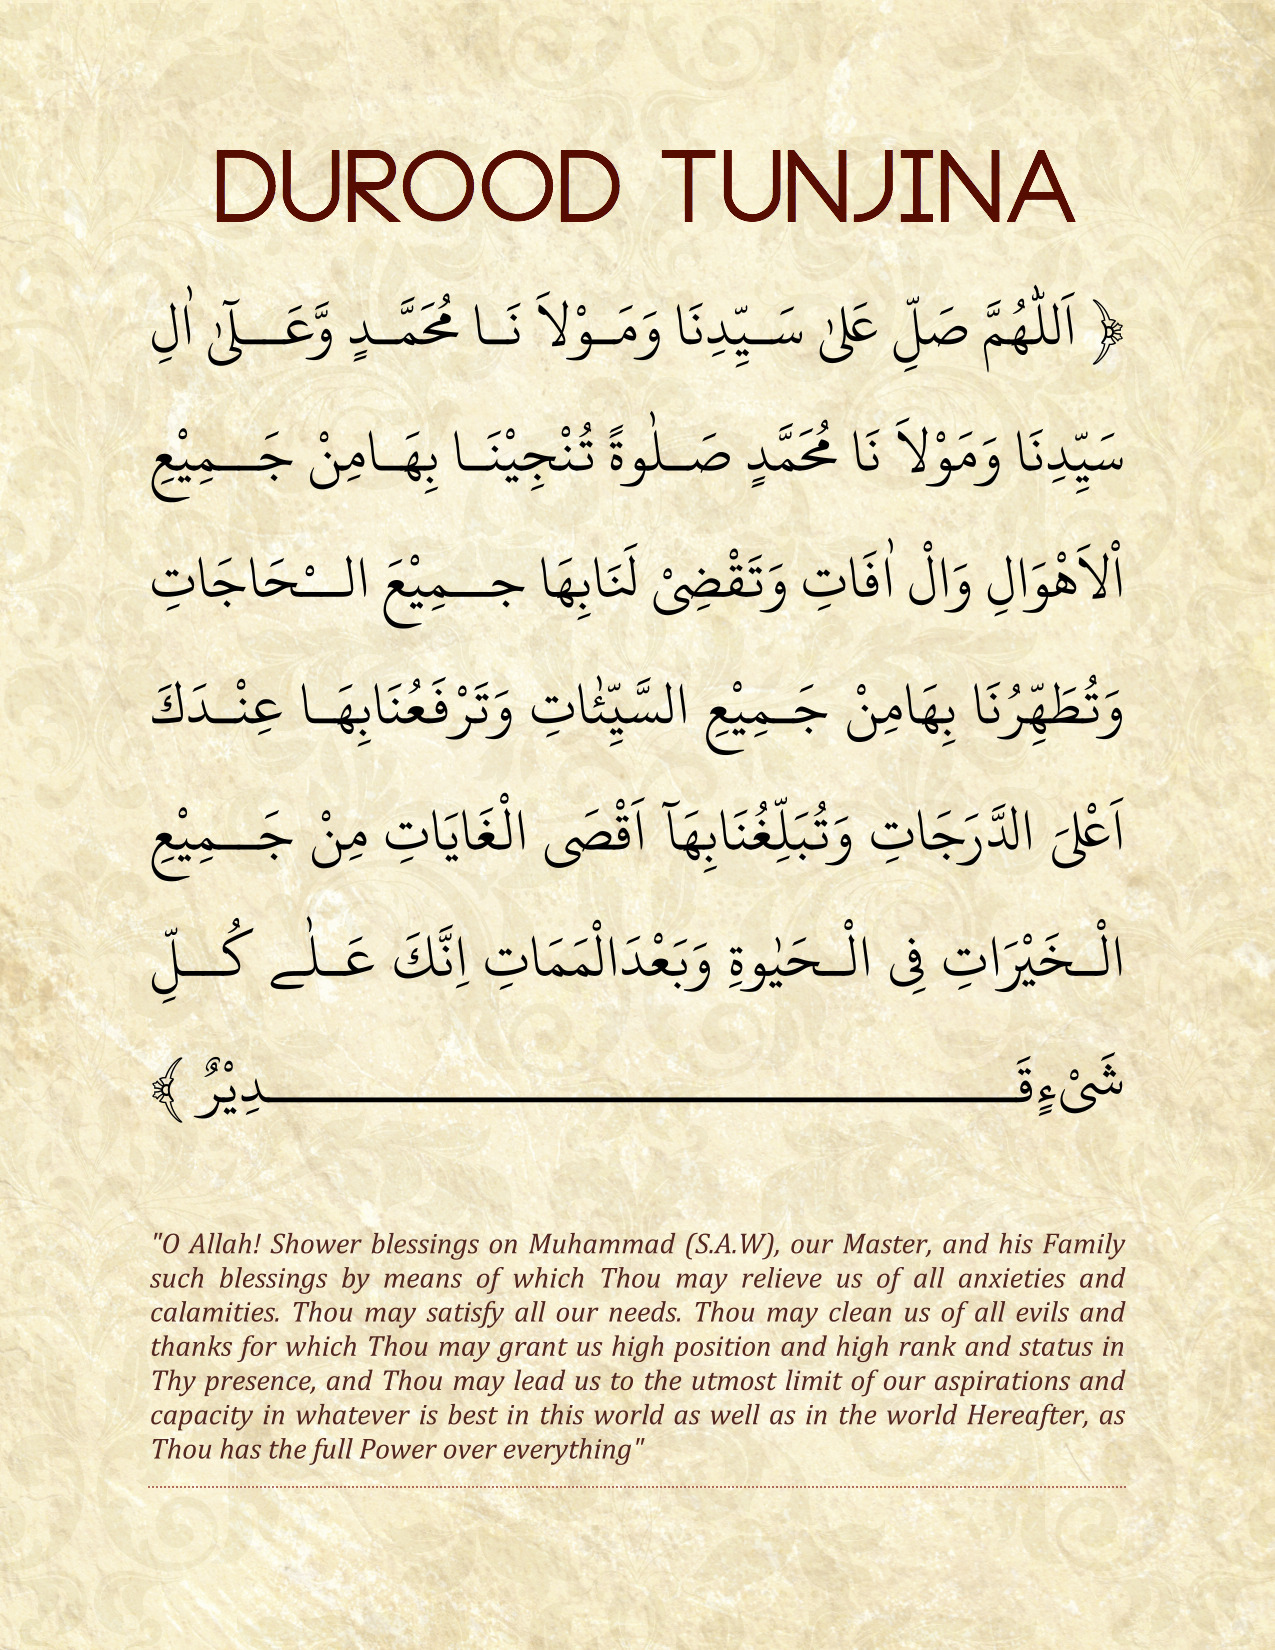 DUROOD TUNJINA
﴿ اَللّٰهُمَّ صَلِّ عَلىٰ سَيِّدِنَا وَمَوْلاَ نَا مُحَمَّدٍ وَّعَلىٰٓ اٰلِ
سَيِّدِنَا وَمَوْلاَ نَا مُحَمَّدٍ صَلٰوةً تُنْجِيْنَا بِهَامِنْ جَمِيْعِ
اْلاَهْوَالِ وَالْ اٰفَاتِ وَتَقْضِىْ لَنَابِهَا جمِيْعَ الْحَاجَاتِ
وَتُطَهِّرُنَا بِهَامِنْ جَمِيْعِ السَّيِّئٰاتِ وَتَرْفَعُنَابِهَا عِنْدَكَ
اَعْلىَ الدَّرَجَاتِ وَتُبَلِّغُنَابِهَآ اَقْصَى الْغَايَاتِ مِنْ جَمِيْعِ
الْخَيْرَاتِ فِى الْحَيٰوةِ وَبَعْدَالْمَمَاتِ اِنَّكَ عَلٰے كُلِّ
شَىْءٍقَدِيْرٌ ﴾
"O Allah! Shower blessings on Muhammad (S.A.W), our Master, and his Family
such blessings by means of which Thou may relieve us of all anxieties and
calamities. Thou may satisfy all our needs. Thou may clean us of all evils and
thanks for which Thou may grant us high position and high rank and status in
Thy presence, and Thou may lead us to the utmost limit of our aspirations and
capacity in whatever is best in this world as well as in the world Hereafter, as
Thou has the full Power over everything"